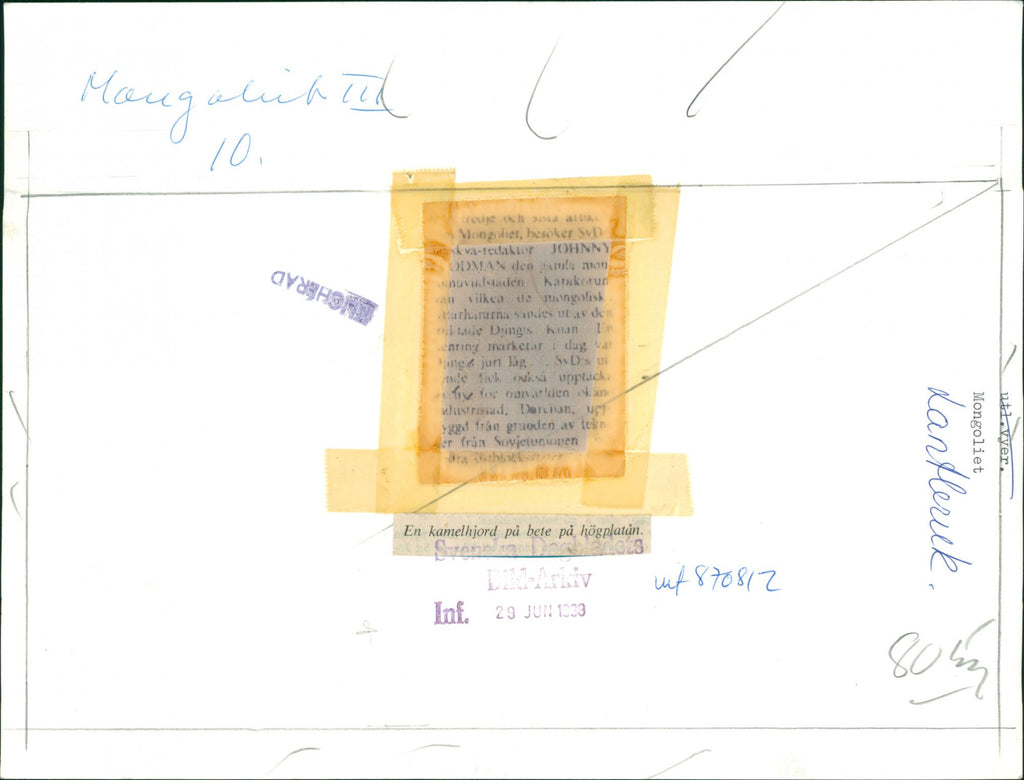 Mongoliet III
10.
tredje och sista artik
Mongoliet, besöker SvD
skva-redaktör JOHNNY
ODMAN den gamla mon
huvudstaden Karakorum
vilken de mongolisk
ttarhärarna sändes ut av den
uktade Djingis Khan En
enring markerar i dag var
jingis jurt låg... SvD:s ut
ende fick också upptäcka
för omvärlden okän
dustristad, Darchan, upp
yggd från grunden av tekn
er från Sovjetunionen
dra östblocksstater
En kamelhjord på bete på högplatån.
Svenska Dagbladets
Bild-Arkiv
Inf. 29 JUN 1983
mf 870812
utl.vyer.
Mongoliet
Lantbruk.
80